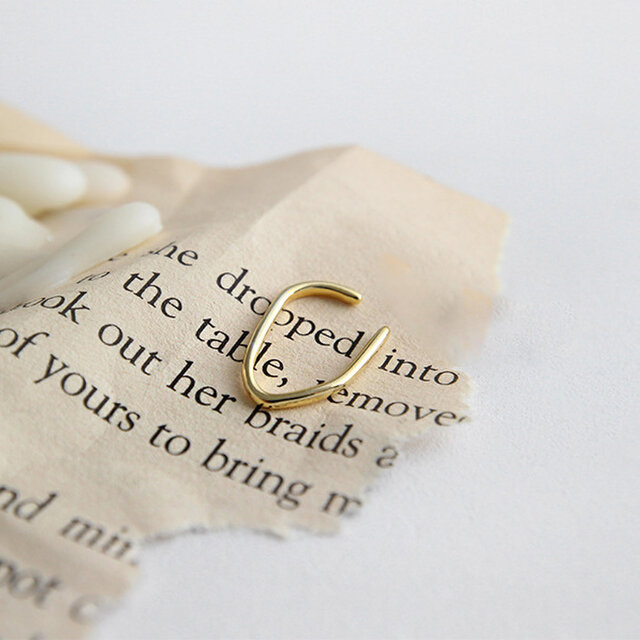 he dropped into
to the table, remove
ook out her braids a
of yours to bring m
nd min
pot c